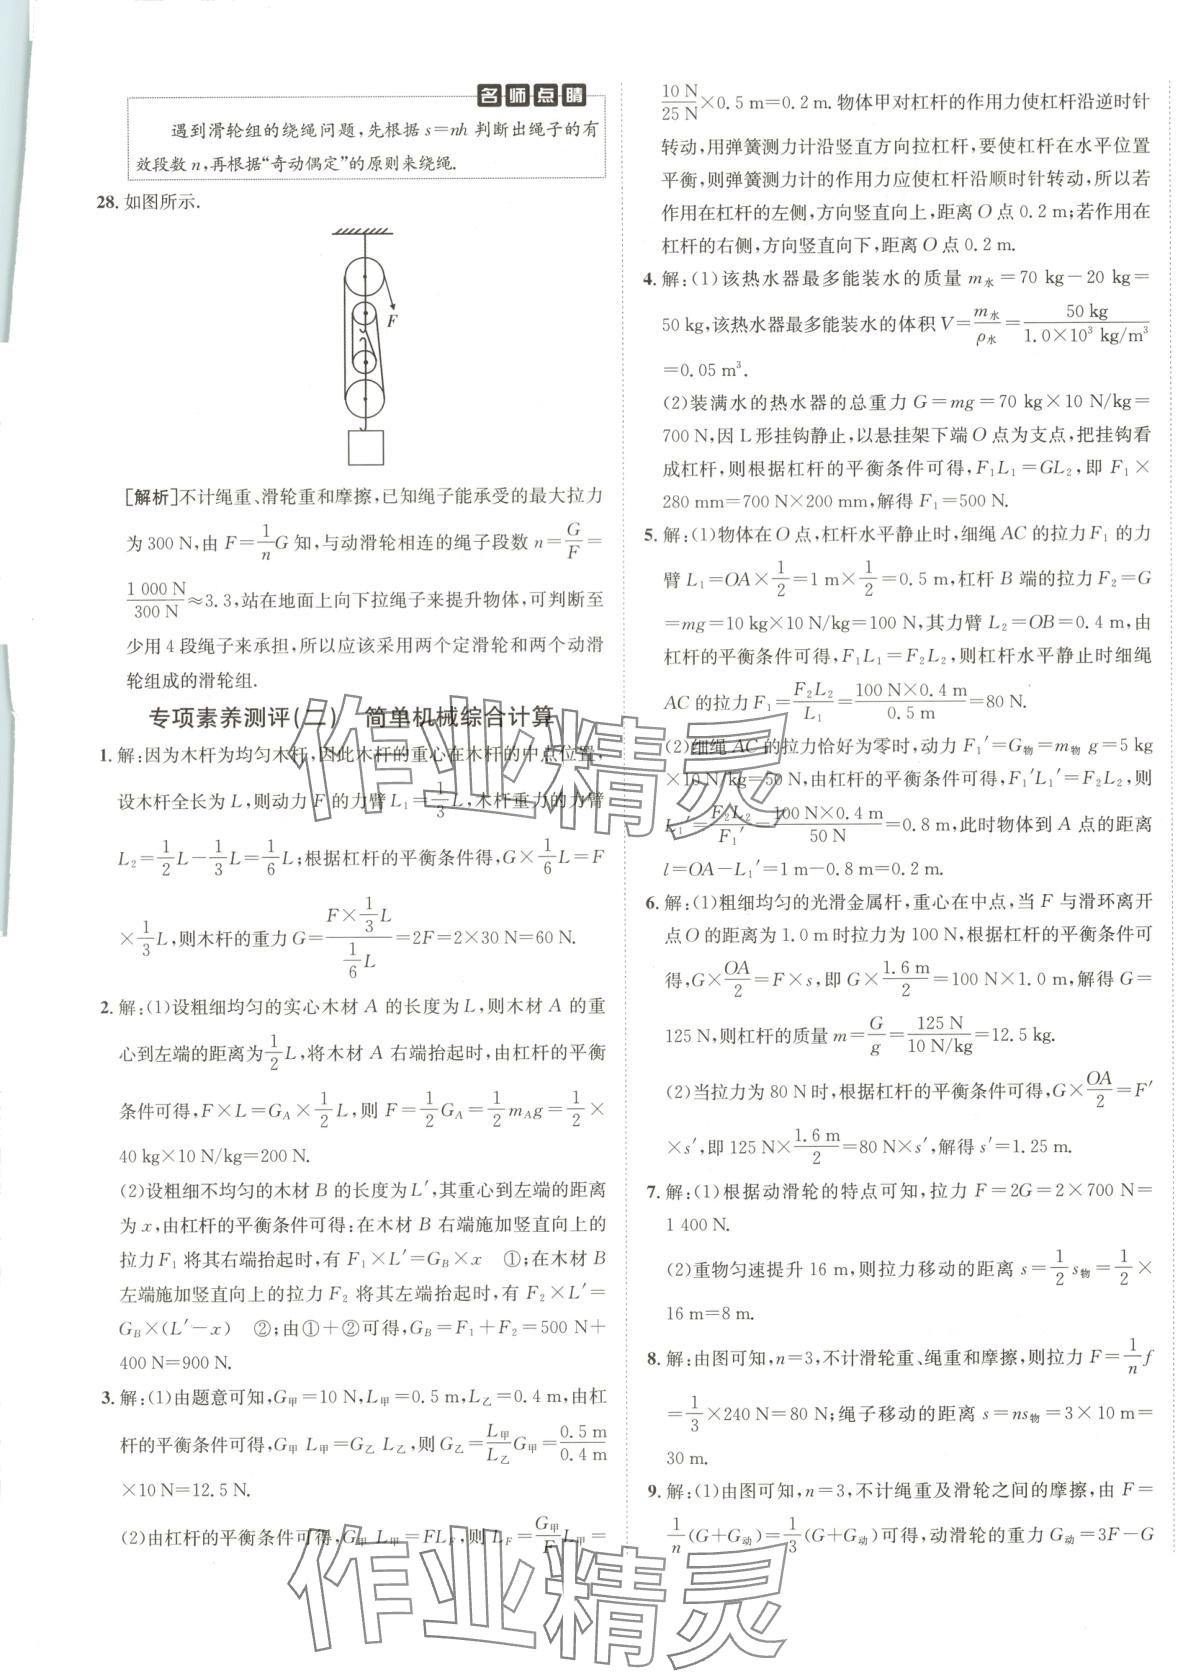 名师点睛
遇到滑轮组的绕绳问题,先根据 s=nh 判断出绳子的有
效段数 n,再根据“奇动偶定”的原则来绕绳.
28. 如图所示.
F
[解析]不计绳重、滑轮重和摩擦,已知绳子能承受的最大拉力
为 300 N,由 F=1/n G 知,与动滑轮相连的绳子段数 n=G/F=
1 000 N/300 N≈3.3,站在地面上向下拉绳子来提升物体,可判断至
少用 4 段绳子来承担,所以应该采用两个定滑轮和两个动滑
轮组成的滑轮组.
专项素养测评(二) 简单机械综合计算
1. 解:因为木杆为均匀木杆,因此木杆的重心在木杆的中点位置,
设木杆全长为 L,则动力 F 的力臂 L₁=1/3 L,木杆重力的力臂
L₂=1/2 L−1/3 L=1/6 L;根据杠杆的平衡条件得,G×1/6 L=F
×1/3 L,则木杆的重力 G=(F×1/3 L)/(1/6 L)=2F=2×30 N=60 N.
2. 解:(1)设粗细均匀的实心木材 A 的长度为 L,则木材 A 的重
心到左端的距离为1/2 L,将木材 A 右端抬起时,由杠杆的平衡
条件可得,F×L=G_A×1/2 L,则 F=1/2 G_A=1/2 m_A g=1/2×
40 kg×10 N/kg=200 N.
(2)设粗细不均匀的木材 B 的长度为L′,其重心到左端的距离
为 x,由杠杆的平衡条件可得:在木材 B 右端施加竖直向上的
拉力F₁ 将其右端抬起时,有 F₁×L′=G_B×x ①;在木材 B
左端施加竖直向上的拉力 F₂ 将其左端抬起时,有 F₂×L′=
G_B×(L′−x) ②;由①+②可得,G_B=F₁+F₂=500 N+
400 N=900 N.
3. 解:(1)由题意可知,G甲=10 N,L甲=0.5 m,L乙=0.4 m,由杠
杆的平衡条件可得,G甲 L甲=G乙 L乙,则 G乙=L甲/L乙 G甲=0.5 m/0.4 m
×10 N=12.5 N.
(2)由杠杆的平衡条件可得,G甲 L甲=FL_F,则 L_F=G甲/F L甲=
10 N/25 N×0.5 m=0.2 m. 物体甲对杠杆的作用力使杠杆沿逆时针
转动,用弹簧测力计沿竖直方向拉杠杆,要使杠杆在水平位置
平衡,则弹簧测力计的作用力应使杠杆沿顺时针转动,所以若
作用在杠杆的左侧,方向竖直向上,距离 O 点 0.2 m;若作用在
杠杆的右侧,方向竖直向下,距离 O 点 0.2 m.
4. 解:(1)该热水器最多能装水的质量 m水=70 kg−20 kg=
50 kg,该热水器最多能装水的体积 V=m水/ρ水=50 kg/(1.0×10³ kg/m³)
=0.05 m³.
(2)装满水的热水器的总重力 G=mg=70 kg×10 N/kg=
700 N,因 L 形挂钩静止,以悬挂架下端 O 点为支点,把挂钩看
成杠杆,则根据杠杆的平衡条件可得,F₁L₁=GL₂,即 F₁×
280 mm=700 N×200 mm,解得 F₁=500 N.
5. 解:(1)物体在 O 点,杠杆水平静止时,细绳 AC 的拉力F₁ 的力
臂 L₁=OA×1/2=1 m×1/2=0.5 m,杠杆 B 端的拉力 F₂=G
=mg=10 kg×10 N/kg=100 N,其力臂 L₂=OB=0.4 m,由
杠杆的平衡条件可得,F₁L₁=F₂L₂,则杠杆水平静止时细绳
AC 的拉力 F₁=F₂L₂/L₁=100 N×0.4 m/0.5 m=80 N.
(2)细绳 AC 的拉力恰好为零时,动力 F₁′=G物=m物 g=5 kg
×10 N/kg=50 N,由杠杆的平衡条件可得,F₁′L₁′=F₂L₂,则
L₁′=F₂L₂/F₁′=100 N×0.4 m/50 N=0.8 m,此时物体到 A 点的距离
l=OA−L₁′=1 m−0.8 m=0.2 m.
6. 解:(1)粗细均匀的光滑金属杆,重心在中点,当 F 与滑环离开
点O 的距离为 1.0 m时拉力为 100 N,根据杠杆的平衡条件可
得,G×OA/2=F×s,即 G×1.6 m/2=100 N×1.0 m,解得 G=
125 N,则杠杆的质量 m=G/g=125 N/10 N/kg=12.5 kg.
(2)当拉力为 80 N时,根据杠杆的平衡条件可得,G×OA/2=F′
×s′,即 125 N×1.6 m/2=80 N×s′,解得 s′=1.25 m.
7. 解:(1)根据动滑轮的特点可知,拉力 F=2G=2×700 N=
1 400 N.
(2)重物匀速提升 16 m,则拉力移动的距离 s=1/2 s物=1/2×
16 m=8 m.
8. 解:由图可知,n=3,不计滑轮重、绳重和摩擦,则拉力 F=1/n f
=1/3×240 N=80 N;绳子移动的距离 s=ns物=3×10 m=
30 m.
9. 解:(1)由图可知,n=3,不计绳重及滑轮之间的摩擦,由 F=
1/n(G+G动)=1/3(G+G动)可得,动滑轮的重力 G动=3F−G
作业精灵
作业精灵